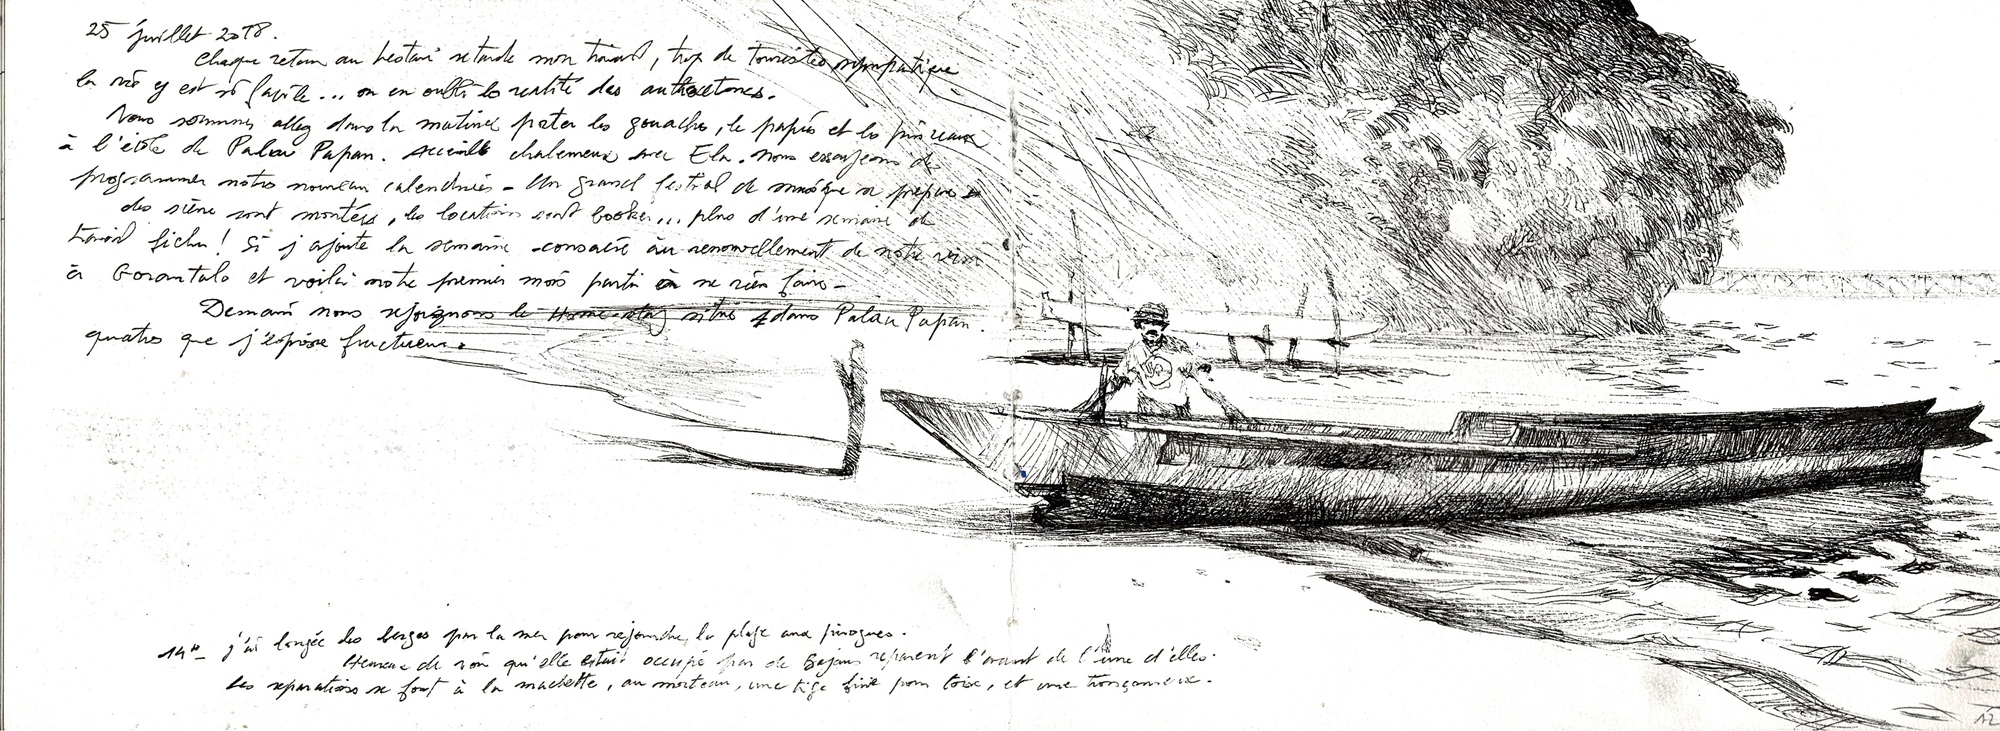 25 juillet 2018.
Chaque retour au bestari retarde mon travail, trop de touristes sympatique
la vie y est si facile... on en oubli la realité des autoctones.
Nous sommes allez dans la matinée porter les gouaches, le papiés et les pinceaux
à l'école de Palau Papan. Accueill chalemeux avec Ela. nous essayons de
programmer notre nouveau calendriés - Un grand festival de musique se prépare
des siène sont montées, les locations sont booker... plus d'une semaine de
travail fichu ! Si j'ajoute la semaine consacré au renouvellement de notre visa
à Gorontalo et voilà notre premier mois parti à ne rien faire -
Demain nous rejoignons le Home-stay situé dans Palau Papan.
que j'éspère fructueux.
14H_ j'ai longée les berges par la mer pour rejoindre la plage aux pirogues.
Heureux de voir qu'elle était occupé par de Bajaus reparent l'avant de l'une d'elles.
Les reparations se font à la machette, au marteau, une tige pour toise, et une tronçonneuse.
12